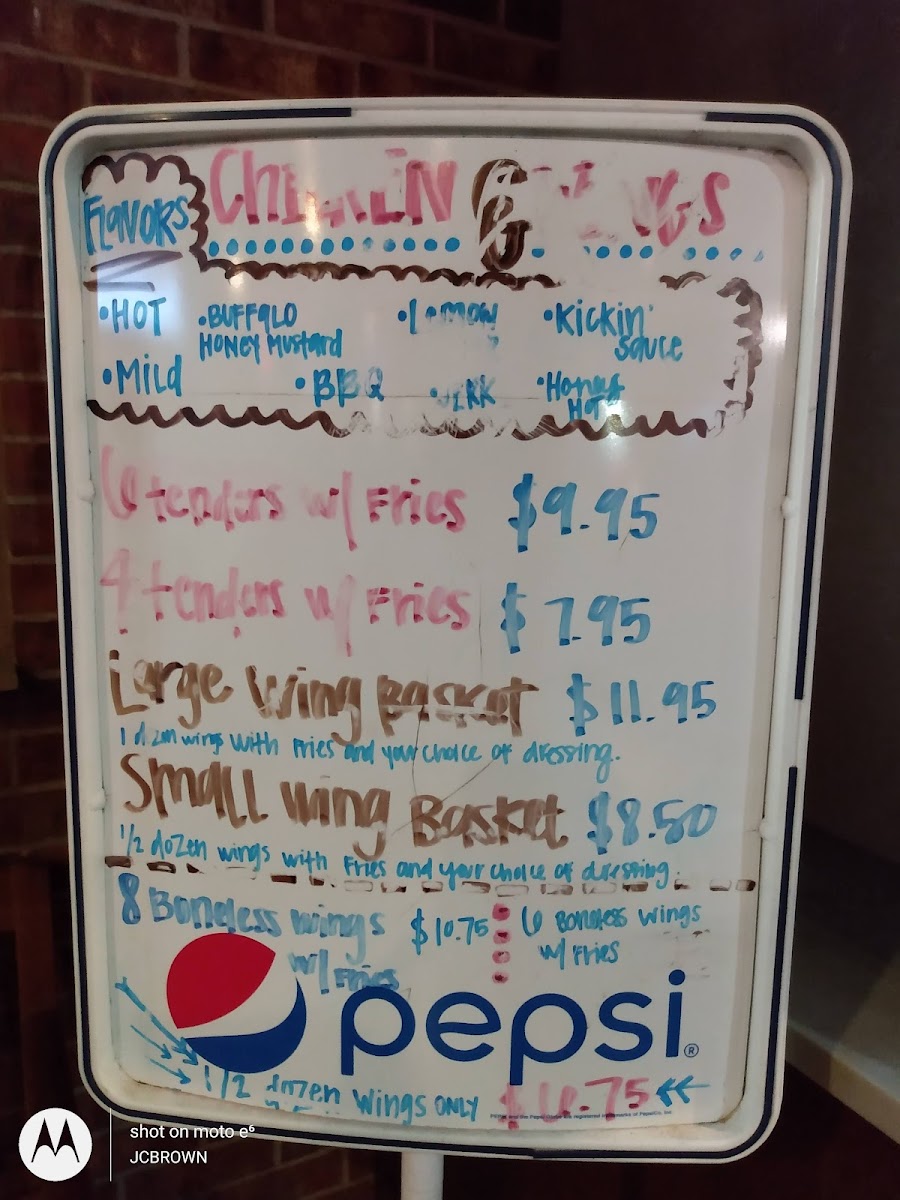 FLAVORS
CHICKEN & WINGS
•HOT
•BUFFALO
HONEY MUSTARD
•Kickin'
Sauce
•Mild
•BBQ
•JERK
•Honey
HOT
6 tenders w/ Fries $9.95
4 tenders w/ Fries $7.95
Large Wing Basket $11.95
1 dozen wings with Fries and your choice of dressing.
Small Wing Basket $8.50
1/2 dozen wings with Fries and your choice of dressing.
8 Boneless wings
w/ Fries
$10.75
6 Boneless wings
w/ Fries
pepsi®
1/2 dozen Wings ONLY $6.75
PEPSI and the Pepsi Globe are registered trademarks of PepsiCo, Inc.
shot on moto e⁶
JCBROWN